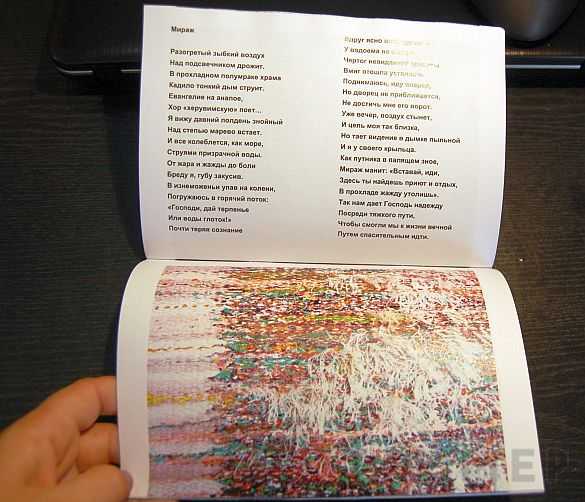 Мираж
Разогретый зыбкий воздух
Над подсвечником дрожит.
В прохладном полумраке храма
Кадило тонкий дым струит.
Евангелие на аналое,
Хор «херувимскую» поет…
Я вижу давний полдень знойный
Над степью марево встает.
И все колеблется, как море,
Струями призрачной воды.
От жара и жажды до боли
Бреду я, губу закусив.
В изнеможеньи упав на колени,
Погружаюсь в горячий поток:
«Господи, дай терпенье
Или воды глоток!»
Почти теряя сознание
Вдруг ясно
У водоема на
Чертог невиданной
Вмиг отошла усталость
Поднимаюсь, иду вперед,
Но дворец не приближается,
Не достичь мне его ворот.
Уже вечер, воздух стынет,
И цель моя так близка,
Но тает видение в дымке пыльной
И я у своего крыльца.
Как путника в палящем зное,
Мираж манит: «Вставай, иди,
Здесь ты найдешь приют и отдых,
В прохладе жажду утолишь».
Так нам дает Господь надежду
Посреди тяжкого пути,
Чтобы смогли мы к жизни вечной
Путем спасительным идти.